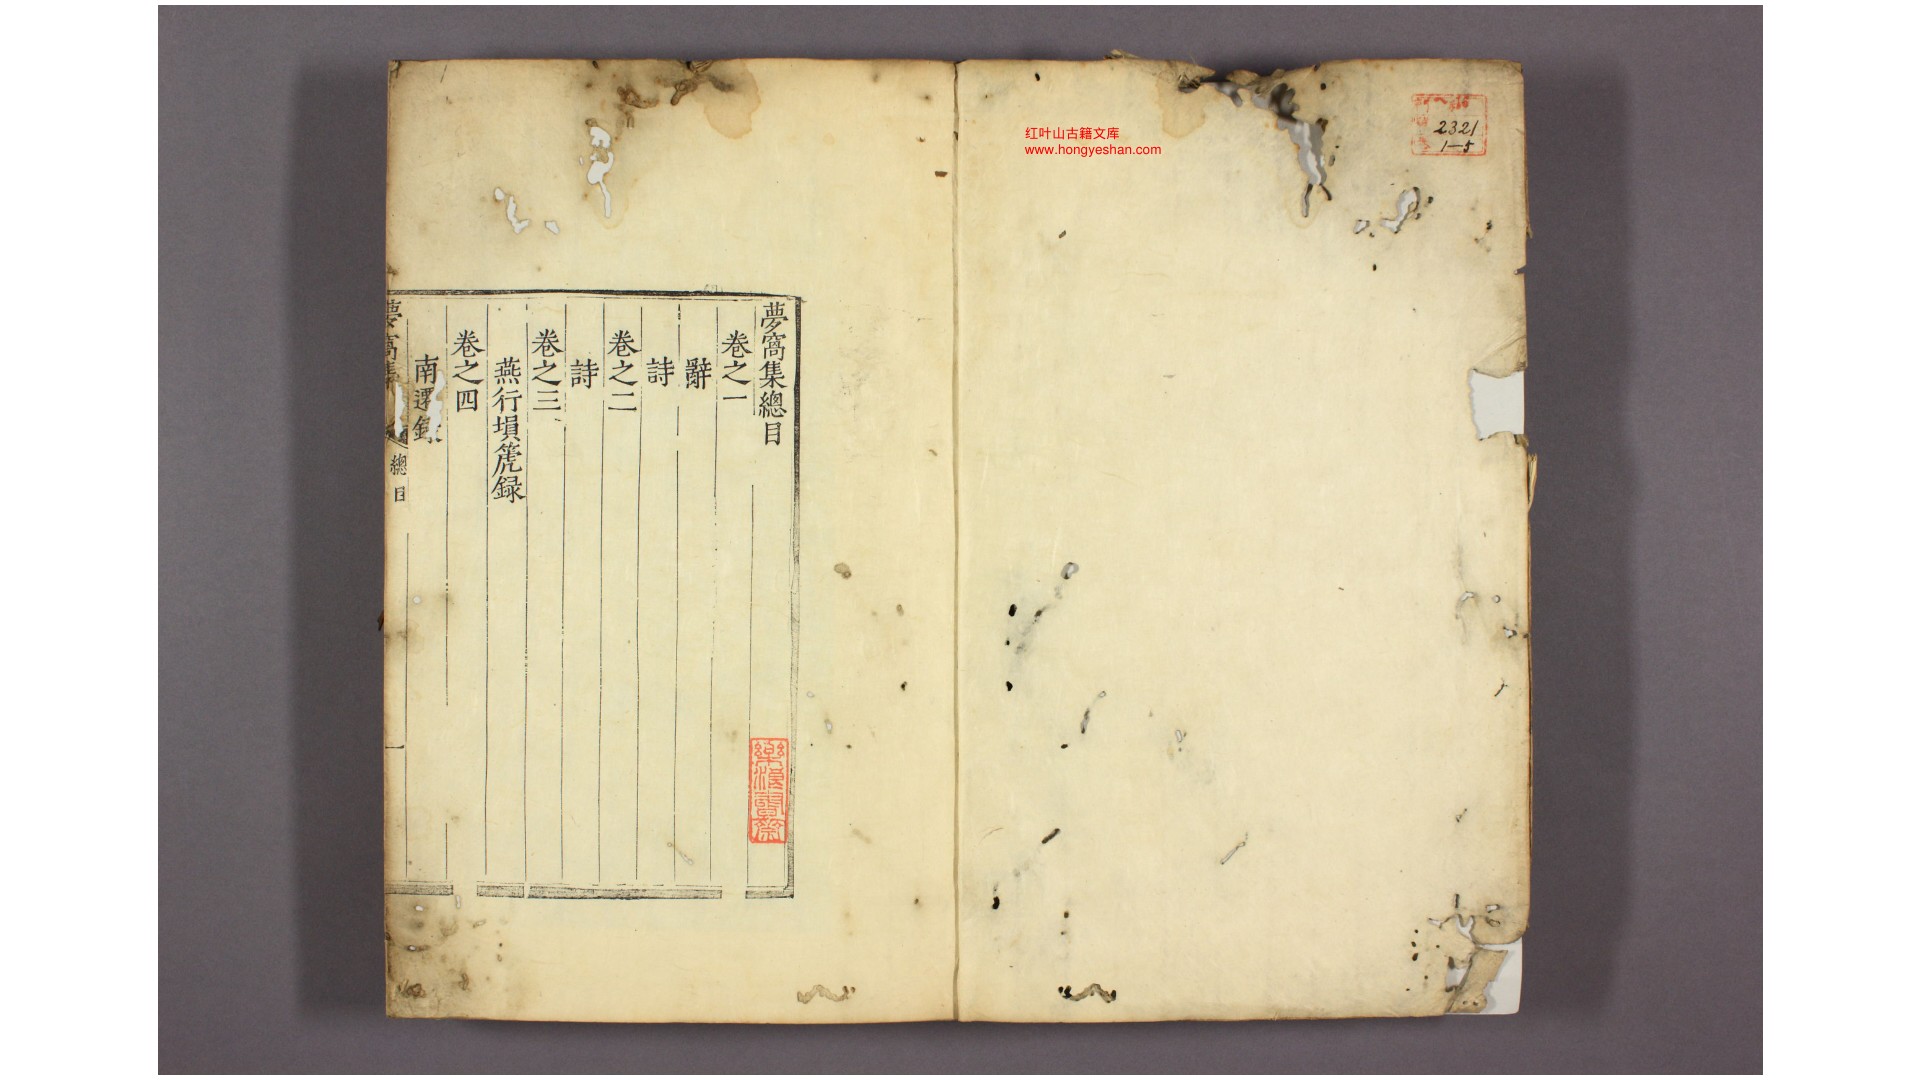 红叶山古籍文库
www.hongyeshan.com
2321
1—5
夢窩集總目
卷之一
辭
詩
卷之二
詩
卷之三
燕行塤箎録
卷之四
南遷録
夢窩集
總目
一